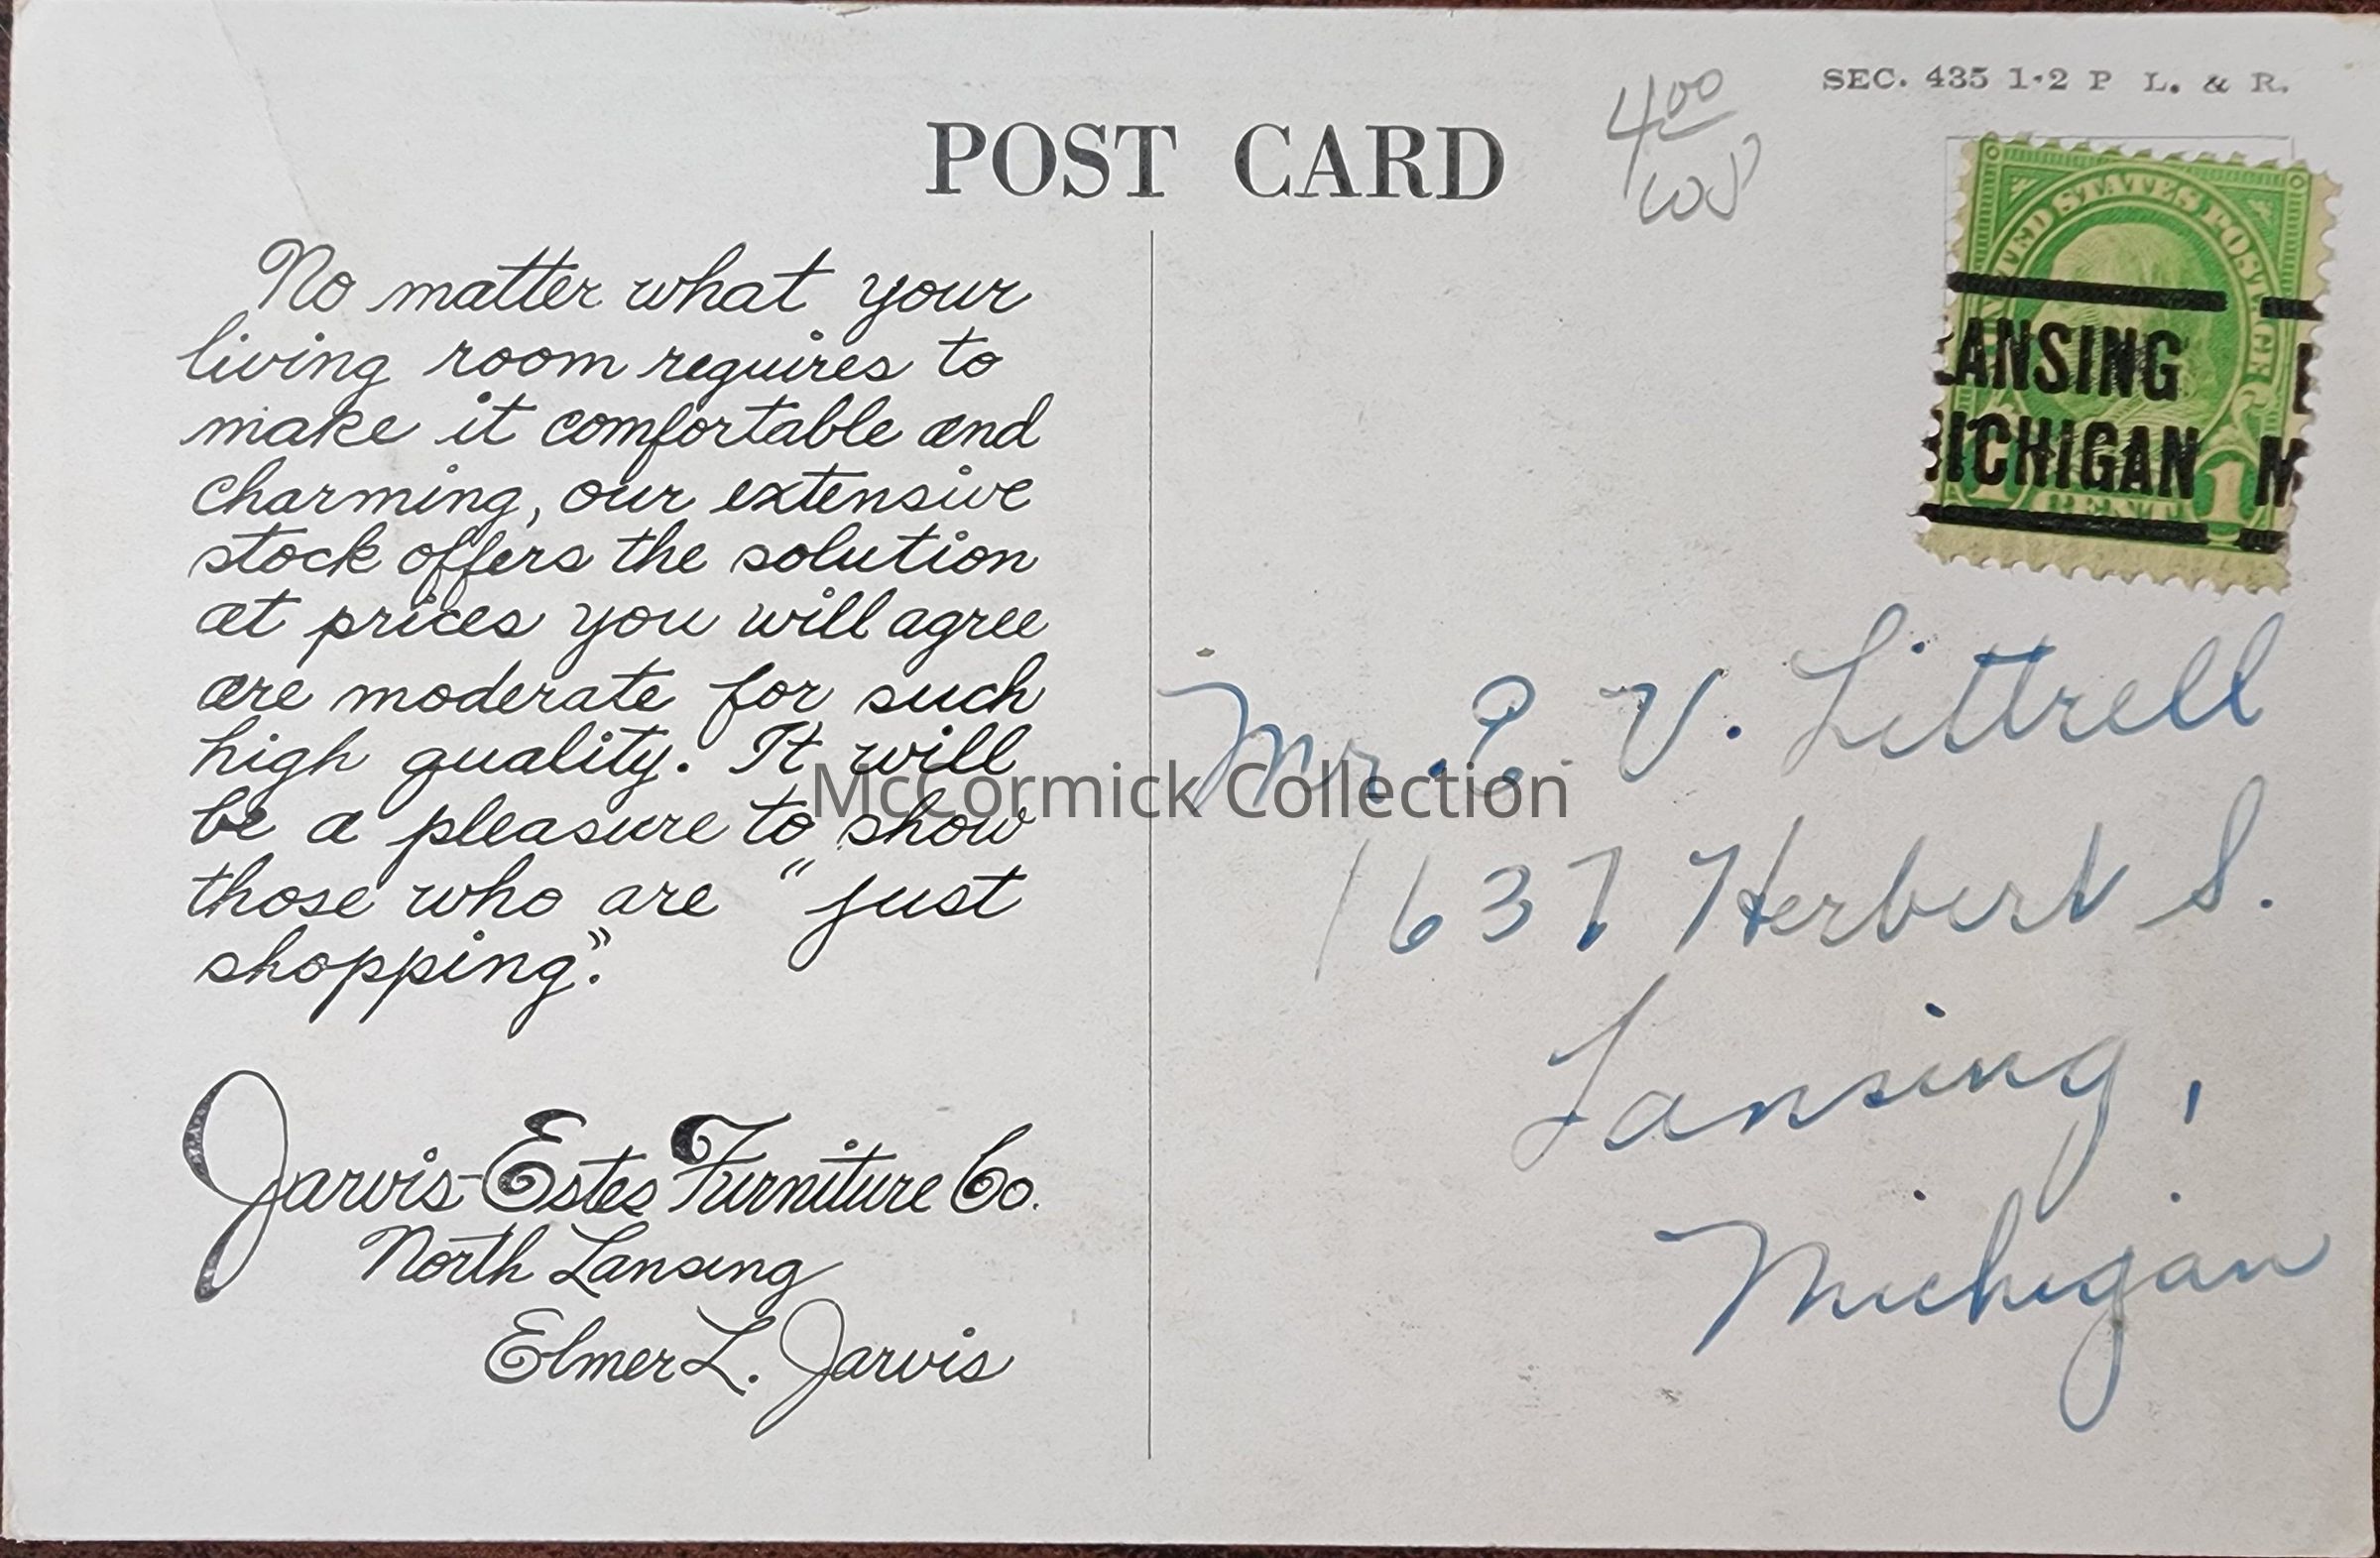 SEC. 435 1·2 P L. & R.
POST CARD
4 00
No matter what your
living room requires to
make it comfortable and
charming, our extensive
stock offers the solution
at prices you will agree
are moderate for such
high quality. It will
be a pleasure to show
those who are "just
shopping".
Jarvis-Estes Furniture Co.
North Lansing
Elmer L. Jarvis
UNITED STATES POSTAGE
LANSING
MICHIGAN
M
1 CENT 1
Mr. E V. Littrell
1637 Herbert S.
Lansing,
Michigan
McCormick Collection